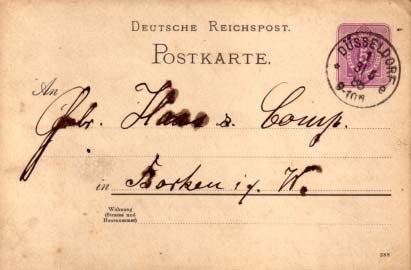 DEUTSCHE REICHSPOST.
POSTKARTE.
DÜSSELDORF
An
Gebr. Haas & Comp.
in Borken i/ W.
Wohnung
(Strasse und
Hausnummer)